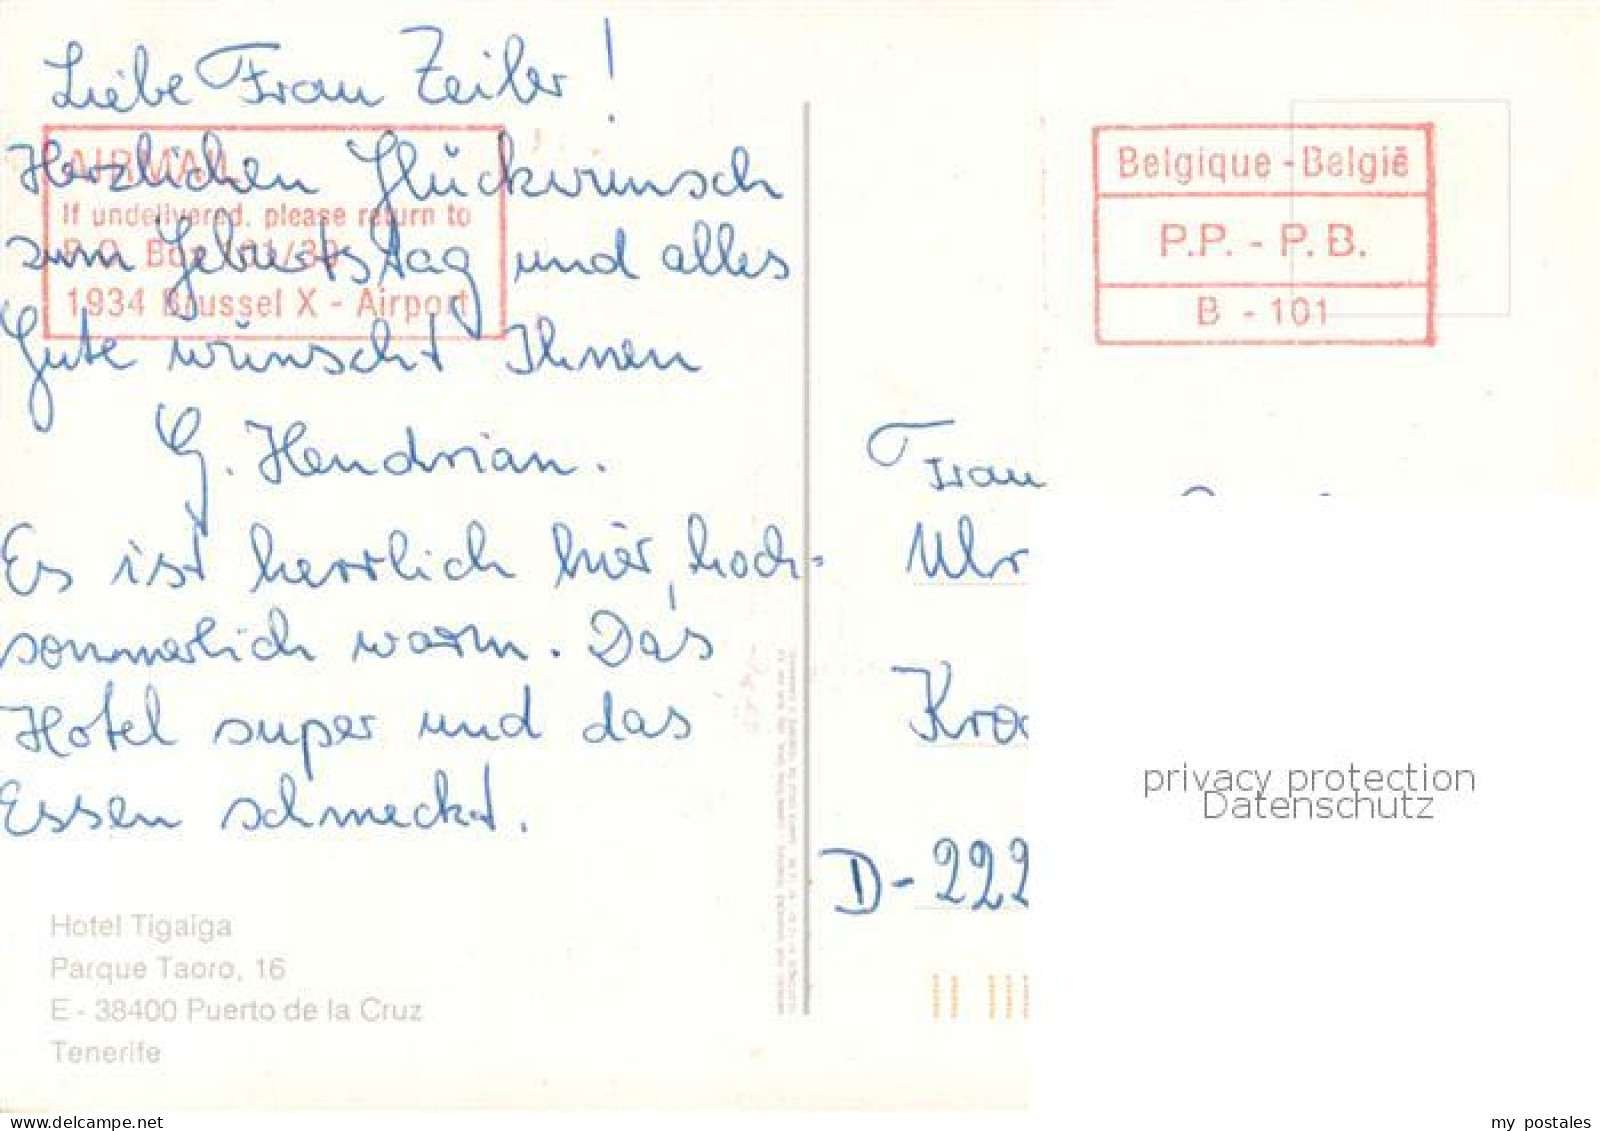 Liebe Frau Zeiler!
Herzlichen Glückwunsch
zum Geburtstag und alles
Gute wünscht Ihnen
G. Hendrian.
Es ist herrlich hier, hoch-
sommerlich warm. Das
Hotel super und das
Essen schmeckt.
AIRMAIL
If undelivered, please return to
P.O. Box
1934 Brussel X - Airport
Hotel Tigaiga
Parque Taoro, 16
E - 38400 Puerto de la Cruz
Tenerife
Belgique - België
P.P. - P.B.
B - 101
Frau
Uhr
Kro
D-222
privacy protection
Datenschutz
delcampe.net
my_postales